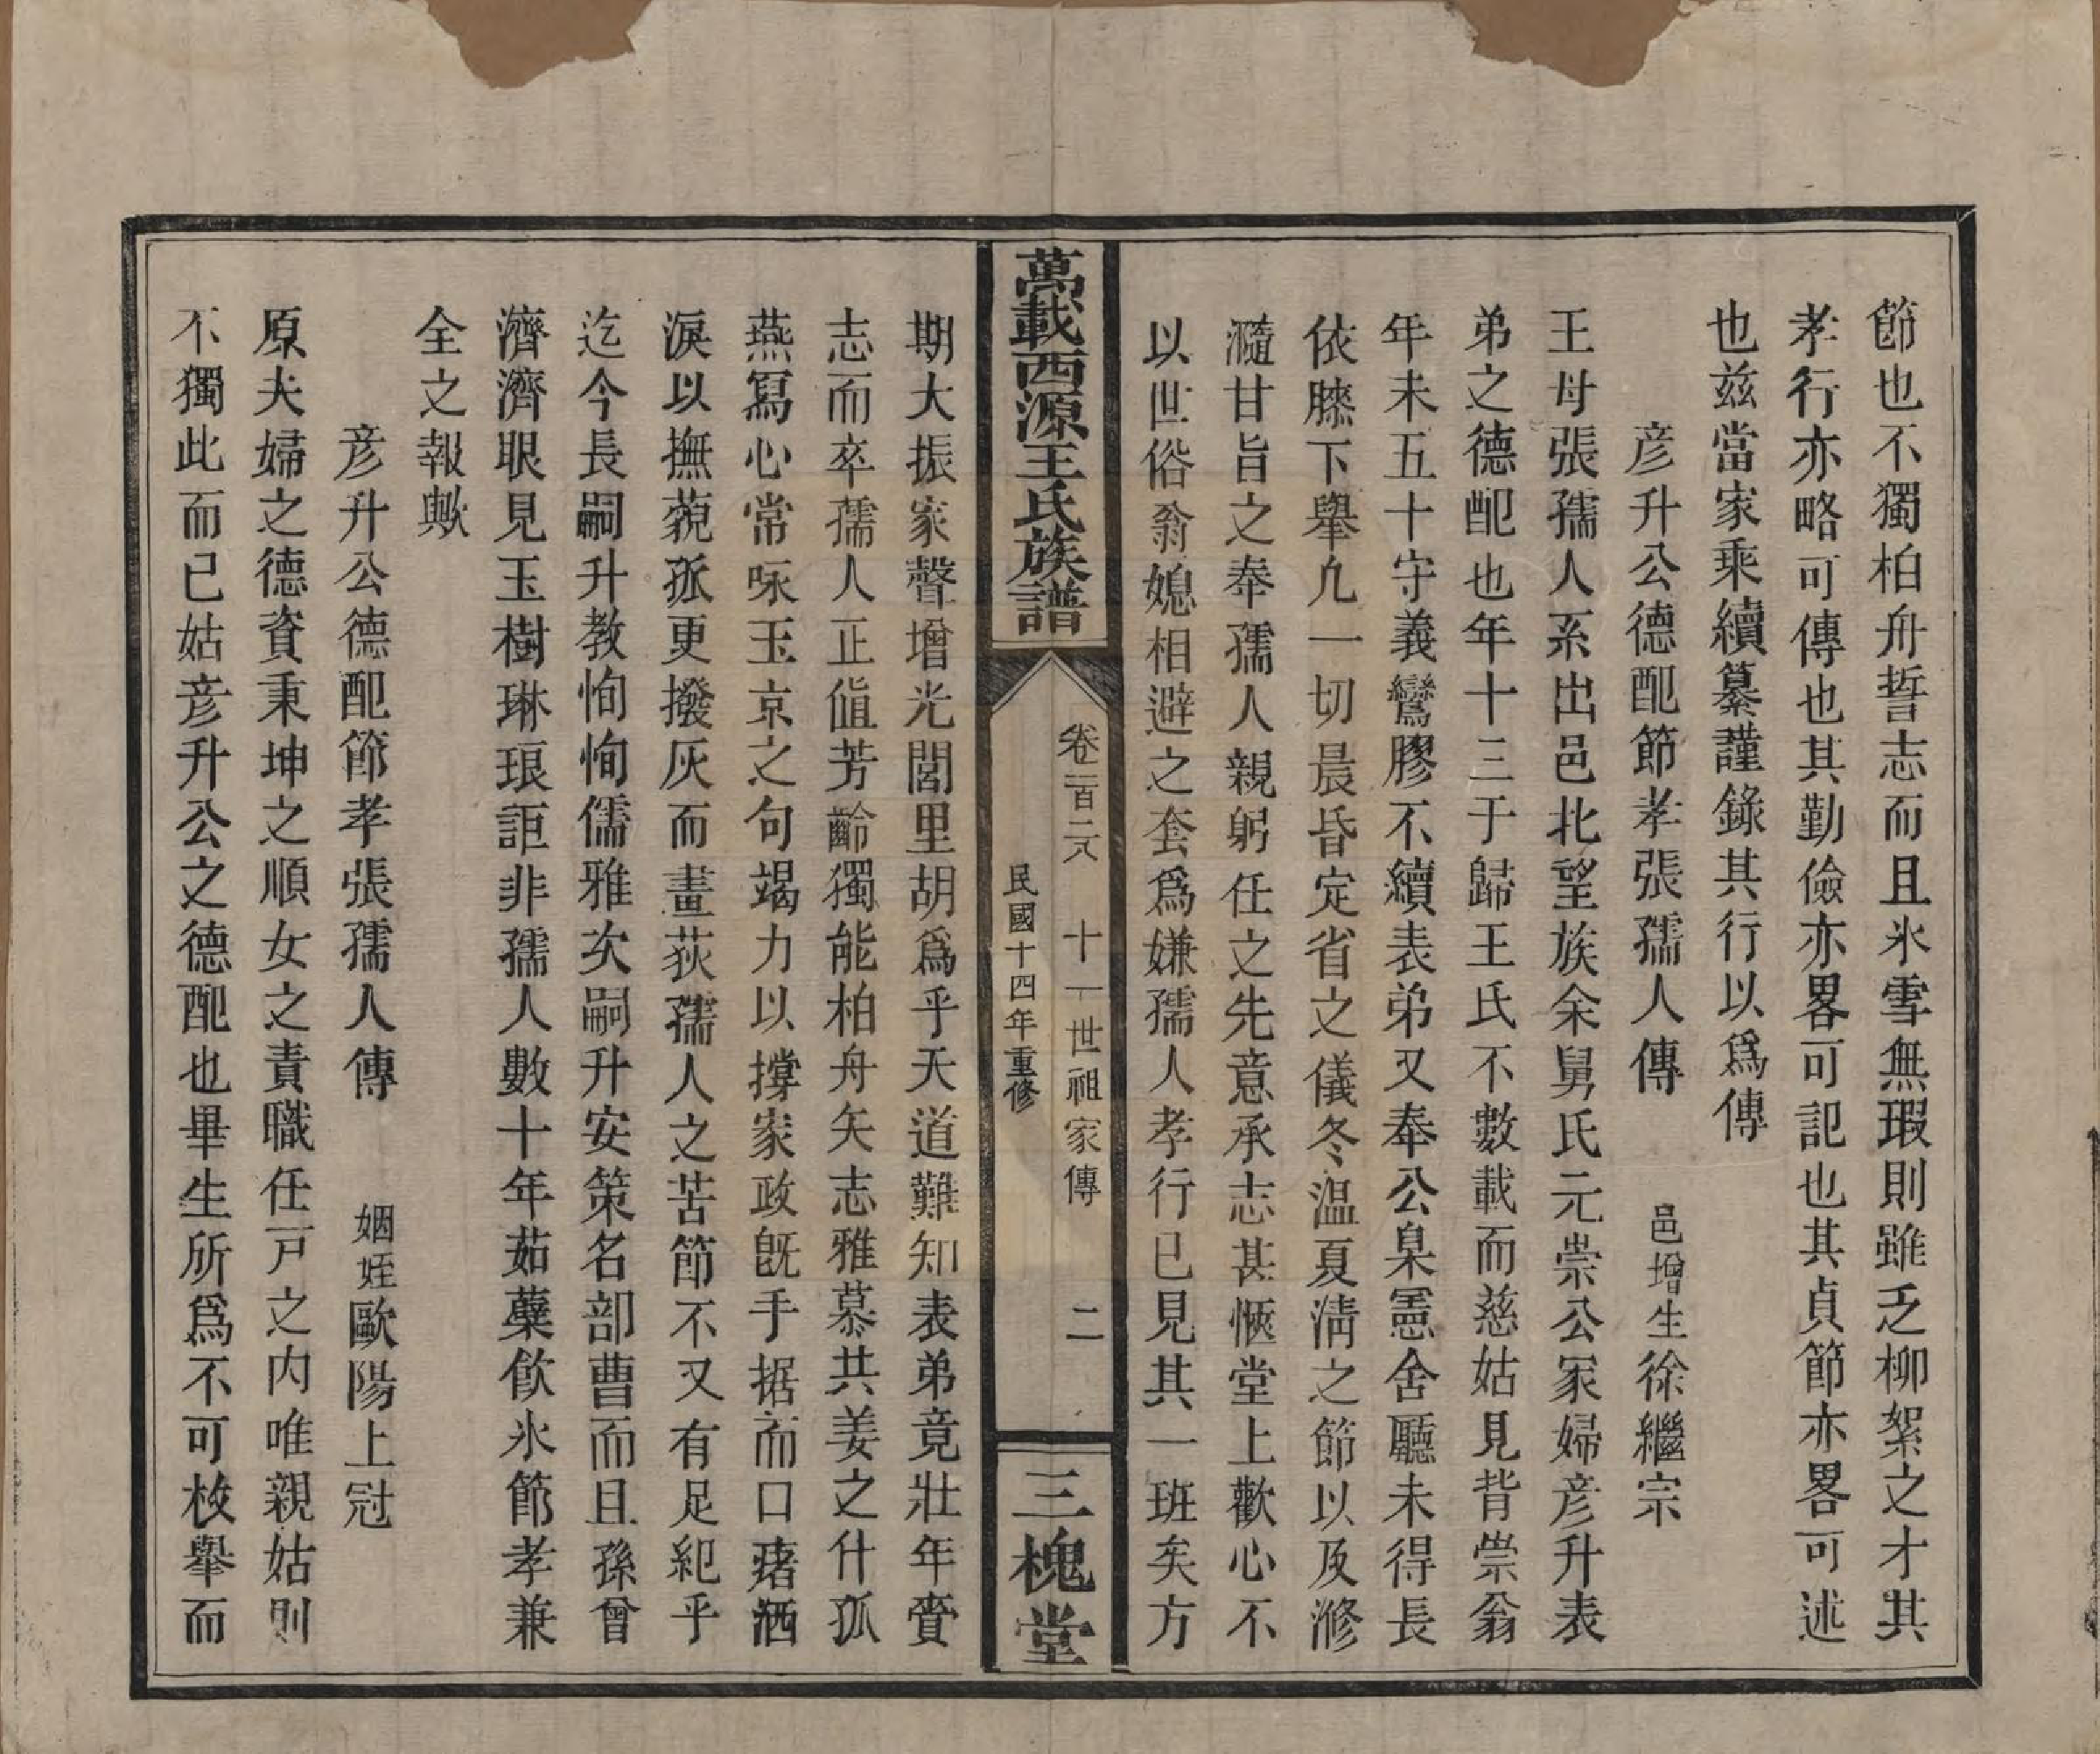 節也不獨柏舟誓志而且氷雪無瑕則雖乏柳絮之才其
孝行亦略可傳也其勤儉亦畧可記也其貞節亦畧可述
也兹當家乘續纂謹錄其行以爲傳
彦升公德配節孝張孺人傳　邑增生徐繼宗
王母張孺人系出邑北望族余舅氏元崇公冢婦彦升表
弟之德配也年十三于歸王氏不數載而慈姑見背崇翁
年未五十守義鸞膠不續表弟又奉公臬憲舍廳未得長
依膝下舉凢一切晨昏定省之儀冬温夏淸之節以及滫
瀡甘旨之奉孺人親躬任之先意承志甚愜堂上歡心不
以世俗翁媳相避之套爲嫌孺人孝行已見其一班矣方
萬載西源王氏族譜
卷二百二八　十一世祖家傳　二
民國十四年重修
三槐堂
期大振家聲增光閭里胡爲乎天道難知表弟竟壯年賫
志而卒孺人正値芳齡獨能柏舟矢志雅慕共姜之什孤
燕寫心常咏玉京之句竭力以撐家政旣手据而口瘏洒
淚以撫藐孤更撥灰而畫荻孺人之苦節不又有足紀乎
迄今長嗣升教恂恂儒雅次嗣升安策名部曹而且孫曾
濟濟眼見玉樹琳琅詎非孺人數十年茹蘗飲氷節孝兼
全之報歟
彦升公德配節孝張孺人傳　姻姪歐陽上冠
原夫婦之德資秉坤之順女之責職任戸之内唯親姑則
不獨此而已姑彦升公之德配也畢生所爲不可枚舉而